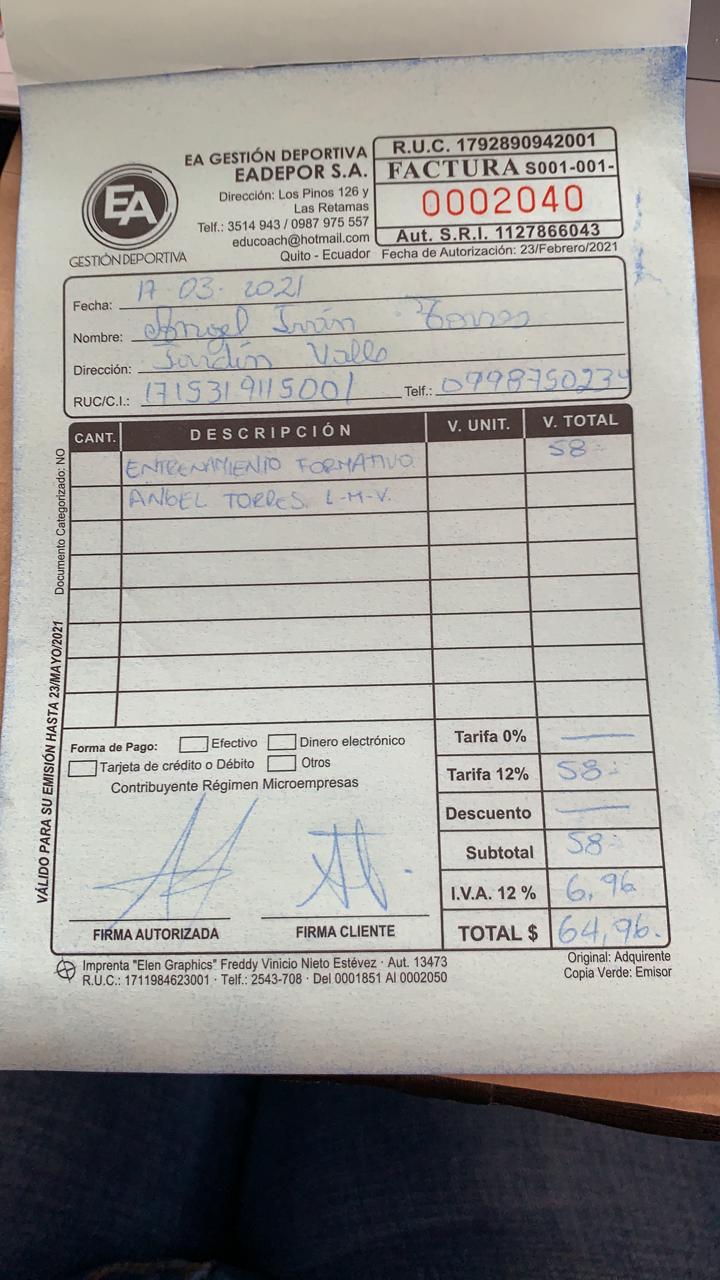 EA
GESTIÓN DEPORTIVA
EA GESTIÓN DEPORTIVA
EADEPOR S.A.
Dirección: Los Pinos 126 y
Las Retamas
Telf.: 3514 943 / 0987 975 557
educoach@hotmail.com
Quito - Ecuador
R.U.C. 1792890942001
FACTURA S001-001-
0002040
Aut. S.R.I. 1127866043
Fecha de Autorización: 23/Febrero/2021
Fecha: 17-03-2021
Nombre: Angel Iván Torres
Dirección: Jardín Valle
RUC/C.I.: 1715319115001 Telf.: 0998750234
CANT. DESCRIPCIÓN V. UNIT. V. TOTAL
ENTRENAMIENTO FORMATIVO 58-
ANGEL TORRES L-M-V.
Documento Categorizado: NO
VÁLIDO PARA SU EMISIÓN HASTA 23/MAYO/2021
Forma de Pago: Efectivo Dinero electrónico
Tarjeta de crédito o Débito Otros
Contribuyente Régimen Microempresas
FIRMA AUTORIZADA FIRMA CLIENTE
Tarifa 0% —
Tarifa 12% 58-
Descuento —
Subtotal 58-
I.V.A. 12 % 6,96
TOTAL $ 64,96.
Imprenta "Elen Graphics" Freddy Vinicio Nieto Estévez · Aut. 13473
R.U.C.: 1711984623001 · Telf.: 2543-708 · Del 0001851 Al 0002050
Original: Adquirente
Copia Verde: Emisor